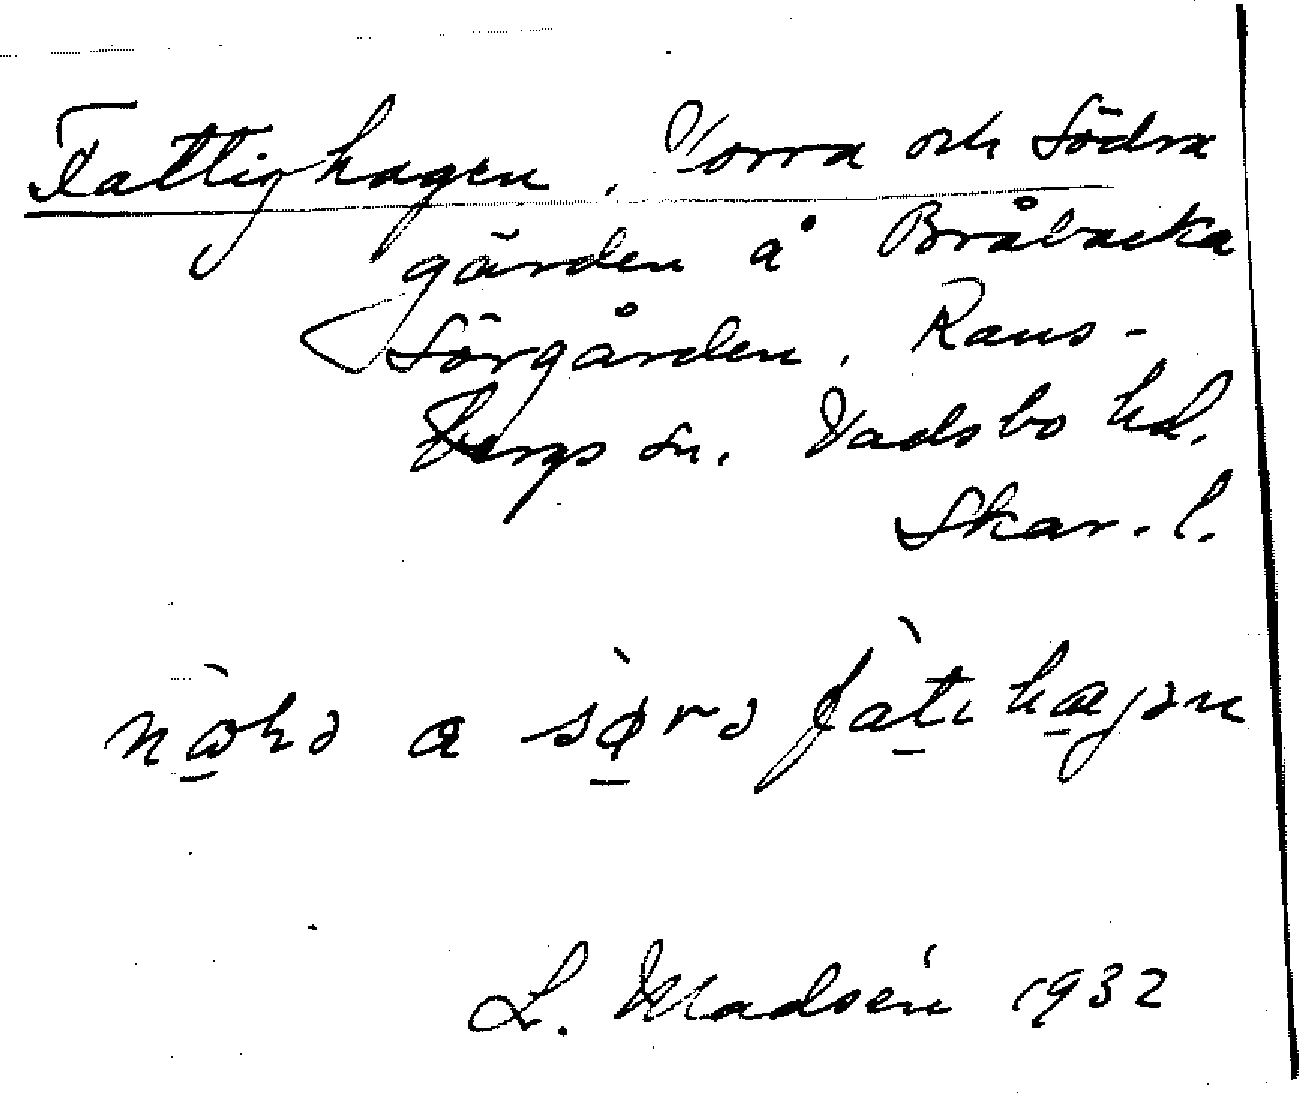 Fattighagen, Norra och Södra
gärden å Bråbacka
Sörgården, Rans-
bergs sn. Vadsbo hd.
Skar. l.
a fàtihagən
L. Madsén 1932